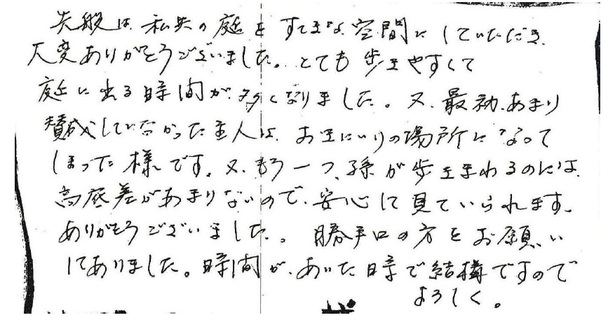 先般は、私共の庭をすてきな空間にしていただき、
大変ありがとうございました。とても歩きやすくて
庭に出る時間が多くなりました。又、最初、あまり
賛成していなかった主人は、お気にいりの場所になって
しまった様です。又、もう一つ、孫が歩きまわるのには、
高底差があまりないので、安心して見ていられます。
ありがとうございました。勝手口の方をお願い
してありました。時間が、あいた時で結構ですので
よろしく。